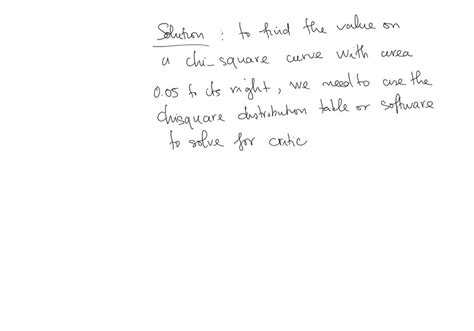 Solution : to find the value on
a chi-square curve with area
0.05 to its right, we need to use the
chisquare distribution table or software
to solve for critic